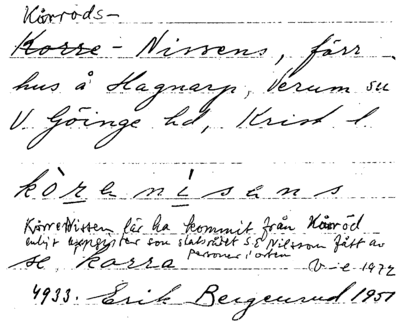 Korröds-
Korre-Nissens, förr
hus å Hagnarp, Verum sn
V Göinge hd, Krist l
kòrenìsens
Korre Nissen lär ha kommit från Korröd
enligt uppgifter som slaktrådet S E Nilsson fått av
personer i orten
se korra V-e 1972
4933. Erik Bergenrud 1951